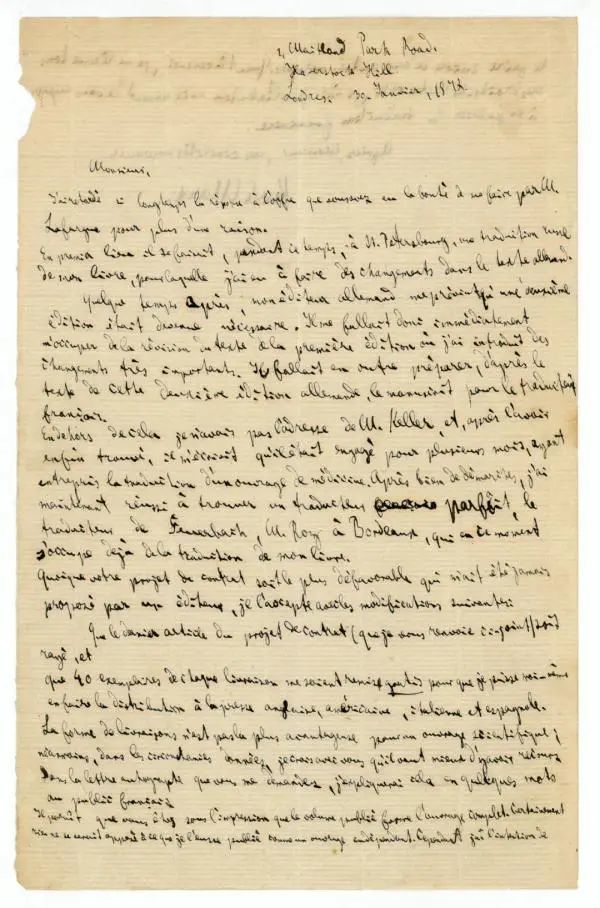 1, Maitland Park Road.
Haverstock Hill
Londres. 30 Janvier, 1872.
Monsieur,
J'ai retardé si longtemps la réponse à l'offre que vous avez eu la bonté de me faire par M.
Lafargue pour plus d'une raison.
En premier lieu il se faisait, pendant ce temps, à St. Petersbourg, une traduction russe
de mon livre, pour laquelle j'ai eu à faire des changements dans le texte allemand.
Quelque temps après, mon éditeur allemand me prévint qu'une deuxième
édition était devenue nécessaire. Il me fallait donc immédiatement
m'occuper de la révision du texte de la première édition où j'ai introduit des
changements très importants. Il fallait en outre préparer, d'après le
texte de cette deuxième édition allemande, le manuscrit pour le traducteur
français.
En dehors de cela je n'avais pas l'adresse de M. Keller, et, après l'avoir
enfin trouvé, il m'écrivait qu'il était engagé pour plusieurs mois, ayant
entrepris la traduction d'un ouvrage de médicine. Après bien de démarches, j'ai
maintenant réussi à trouver un traducteur parfait, le
traducteur de Feuerbach, M. Roy à Bordeaux, qui en ce moment
s'occupe déjà de la traduction de mon livre.
Quoique votre projet de contrat soit le plus défavorable qui m'ait été jamais
proposé par un éditeur, je l'accepte avec les modifications suivantes:
Que le dernier article du projet de contrat (que je vous renvoie ci-joint) soit
rayé, et
que 40 exemplaires de chaque livraison me soient remis gratis pour que je puisse moi-même
en faire la distribution à la presse anglaise, américaine, italienne et espagnole.
La forme de livraisons n'est pas la plus avantageuse pour un ouvrage scientifique;
néanmoins, dans les circonstances données, je crois avec vous qu'il vaut mieux d'y avoir recours.
Dans la lettre autographe que vous me demandez, j'expliquerai cela en quelques mots
au public français.
Il paraît que vous êtes sous l'impression que le volume publié forme l'ouvrage complet. Certainement
rien ne se serait opposé à ce que je l'eusse publié comme un ouvrage indépendant. Cependant j'ai l'intention de